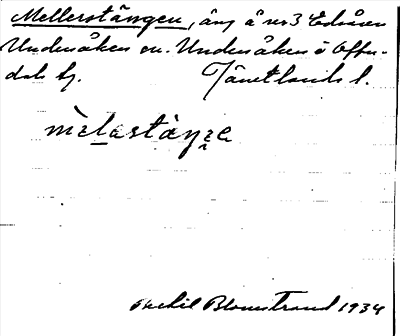 Mellerstängen, äng å nr 3 Edsåsen
Undersåkers sn. Undersåkers o Offer-
dals tg. Jämtlands l.
mèlastàŋɛ
Bertil Blomstrand 1934